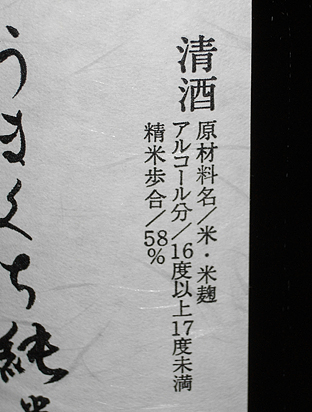 清酒
原材料名/米・米麹
アルコール分/16度以上17度未満
精米歩合/58%
うまくち純